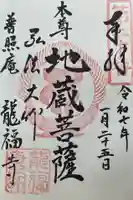 奉拝
令和七年
一月二十五日
本尊
地蔵菩薩
弘法大師
普照庵
龍福寺